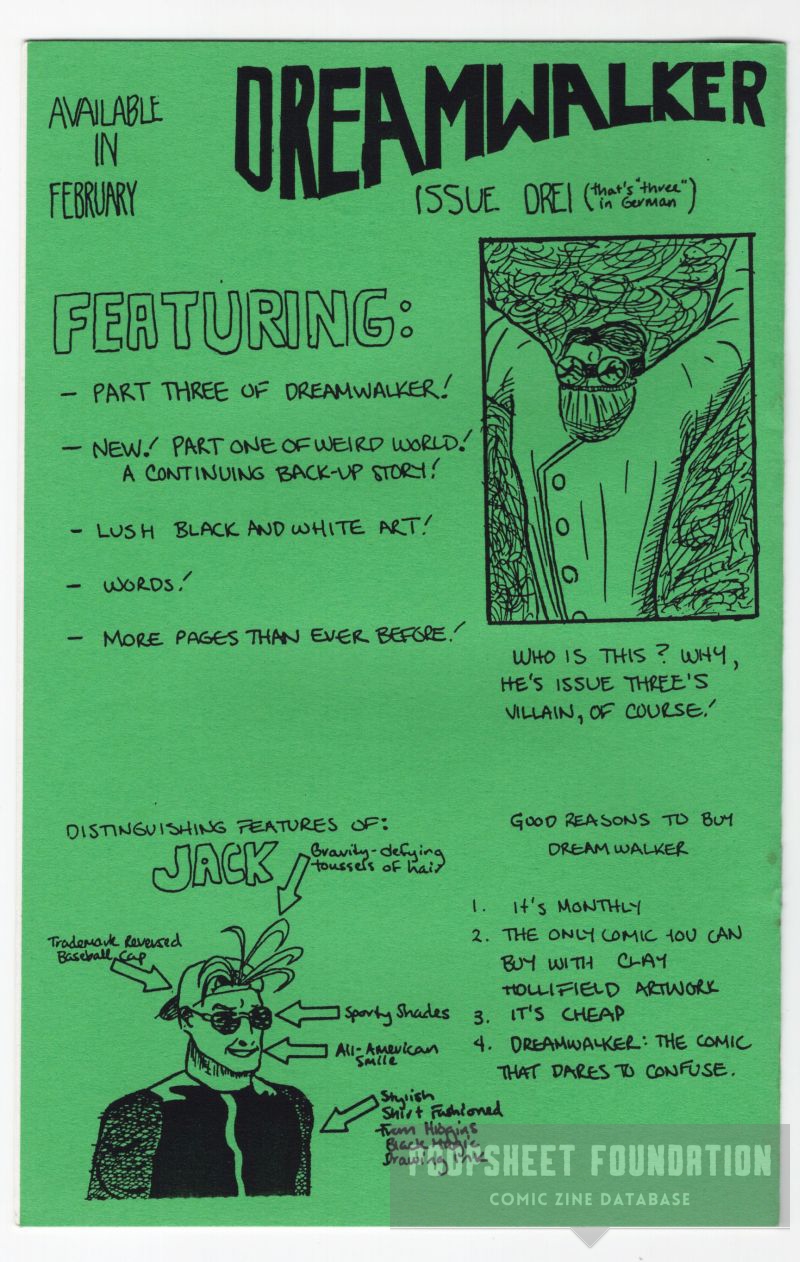 AVAILABLE
IN
FEBRUARY
DREAMWALKER
ISSUE DREI (that's "three"
in German)
FEATURING:
- PART THREE OF DREAMWALKER!
- NEW! PART ONE OF WEIRD WORLD!
A CONTINUING BACK-UP STORY!
- LUSH BLACK AND WHITE ART!
- WORDS!
- MORE PAGES THAN EVER BEFORE!
WHO IS THIS? WHY,
HE'S ISSUE THREE'S
VILLAIN, OF COURSE!
DISTINGUISHING FEATURES OF:
JACK
Gravity-defying
toussels of hair
Trademark Reversed
Baseball Cap
Sporty Shades
All-American
Smile
Stylish
Shirt Fashioned
From Higgins
Black Magic
Drawing Ink
GOOD REASONS TO BUY
DREAMWALKER
1. It's MONTHLY
2. THE ONLY COMIC YOU CAN
BUY WITH CLAY
HOLLIFIELD ARTWORK
3. IT'S CHEAP
4. DREAMWALKER: THE COMIC
THAT DARES TO CONFUSE.
POOPSHEET FOUNDATION
COMIC ZINE DATABASE